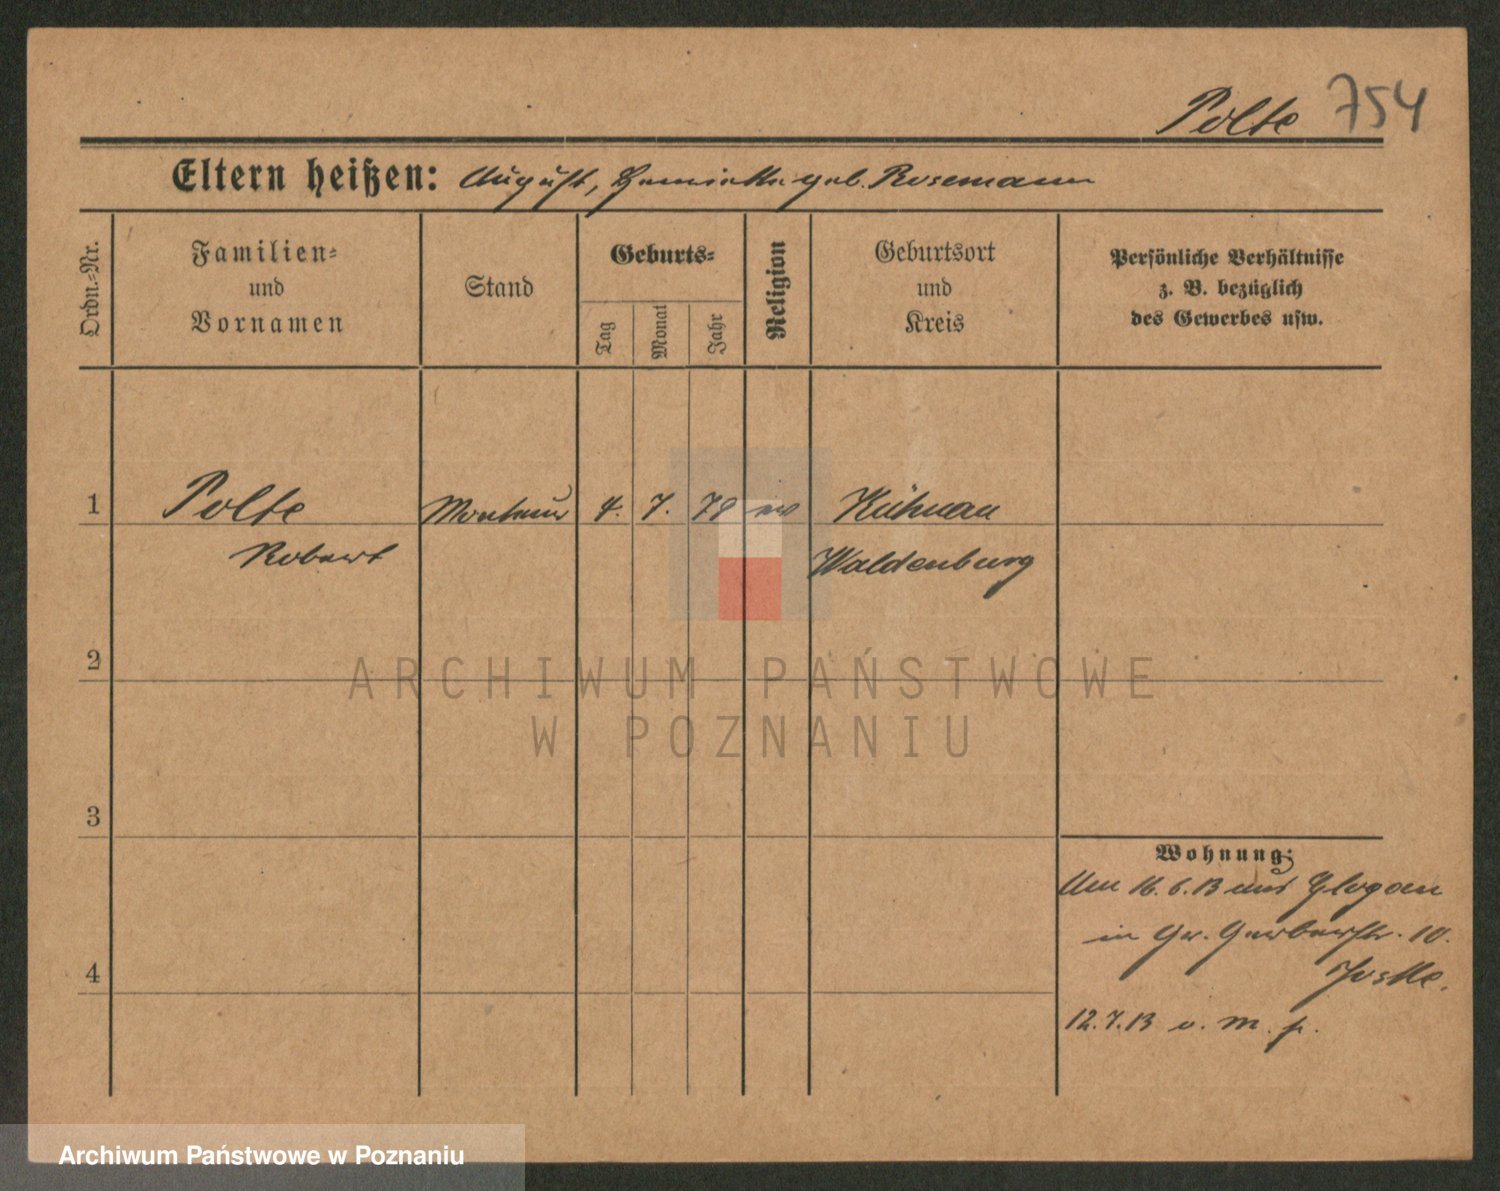 Polte 754
Eltern heißen: August, Henriette geb. Rosemann
Ordn.-Nr.
Familien-
und
Vornamen
Stand
Geburts-
Tag
Monat
Jahr
Religion
Geburtsort
und
Kreis
Persönliche Verhältnisse
z. B. bezüglich
des Gewerbes usw.
1 Polte Monteur 4. 7. 78 ev Kühnau
Robert Waldenburg
2
ARCHIWUM PAŃSTWOWE
W POZNANIU
3
Wohnung:
Am 16.6.13 aus Glogau
in Gr. Gerberstr. 10.
12.7.13 o. m. f.
4
Archiwum Państwowe w Poznaniu